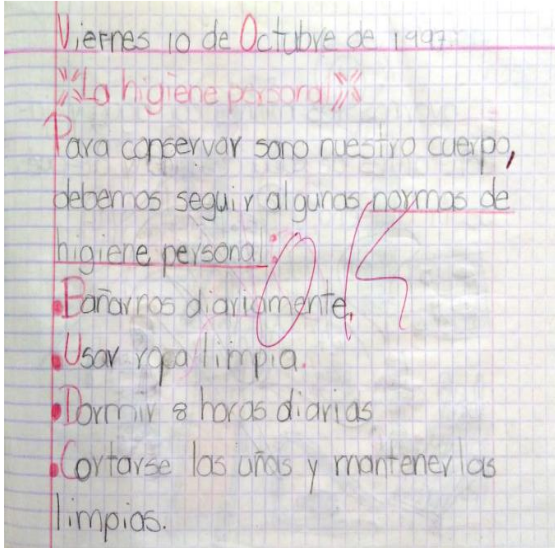 Viernes 10 de Octubre de 1997.
La higiene personal
Para conservar sano nuestro cuerpo,
debemos seguir algunas normas de
higiene personal:
OK
•Bañarnos diariamente.
•Usar ropa limpia.
•Dormir 8 horas diarias
•Cortarse las uñas y mantenerlas
limpias.